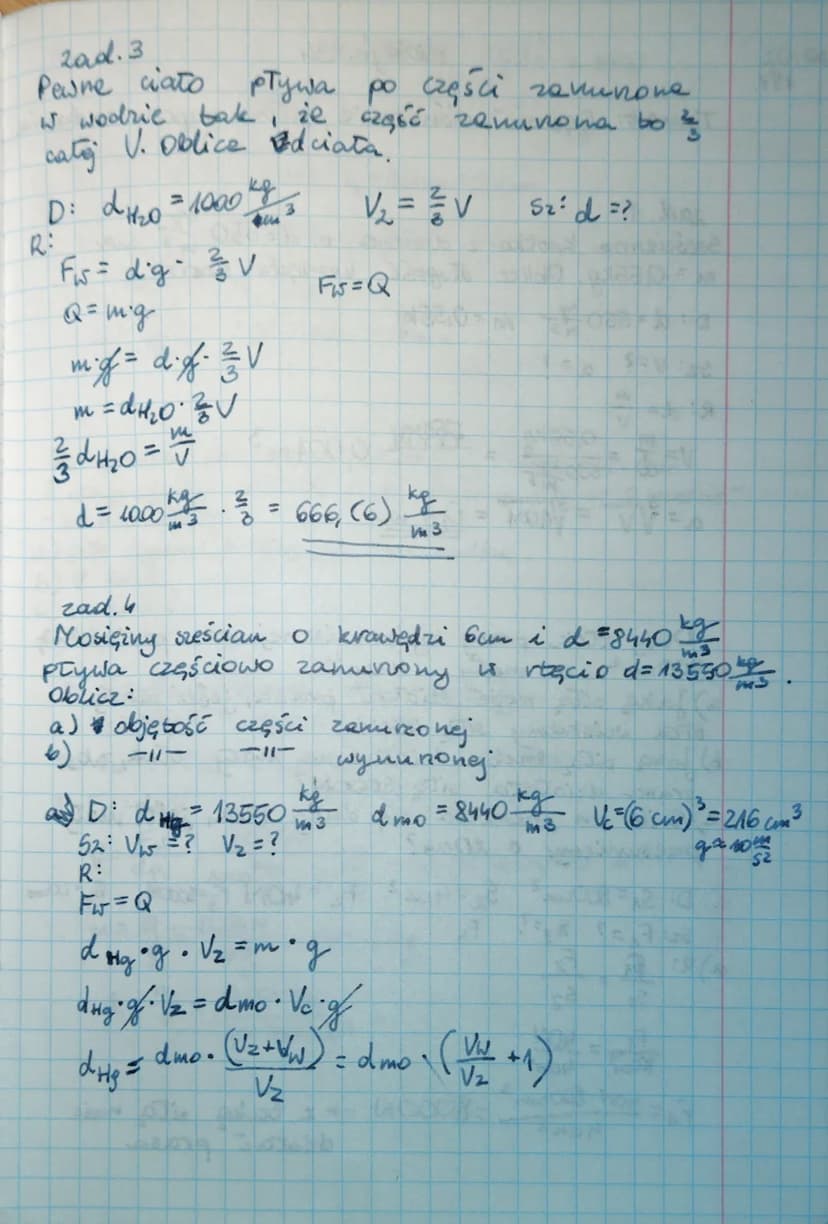 zad.3
Pewne ciało pływa po części zanurzone
w wodzie tak, że część zanurzona to 2/3
całej V. Oblicz d ciała.
D: d H₂O = 1000 kg/m³ V₂ = 2/3 V Sz: d = ?
R:
Fw = d·g· 2/3 V
Fw = Q
Q = m·g
m·g = d·g· 2/3 V
m = d H₂O · 2/3 V
2/3 d H₂O = m/V
d = 1000 kg/m³ · 2/3 = 666,(6) kg/m³
zad.4
Mosiężny sześcian o krawędzi 6cm i d = 8440 kg/m³
pływa częściowo zanurzony w rtęcio d = 13550 kg/m³.
Oblicz:
a) objętość części zanurzonej
b) -"- -"- wynurzonej
a) D: d Hg = 13550 kg/m³ d mo = 8440 kg/m³ Vc = (6 cm)³ = 216 cm³
g ≈ 10 m/s²
Sz: Vw = ? Vz = ?
R:
Fw = Q
d Hg · g · Vz = m · g
d Hg · g · Vz = d mo · Vc · g
d Hg = d mo · (Vz + Vw)/Vz = d mo · (Vw/Vz + 1)